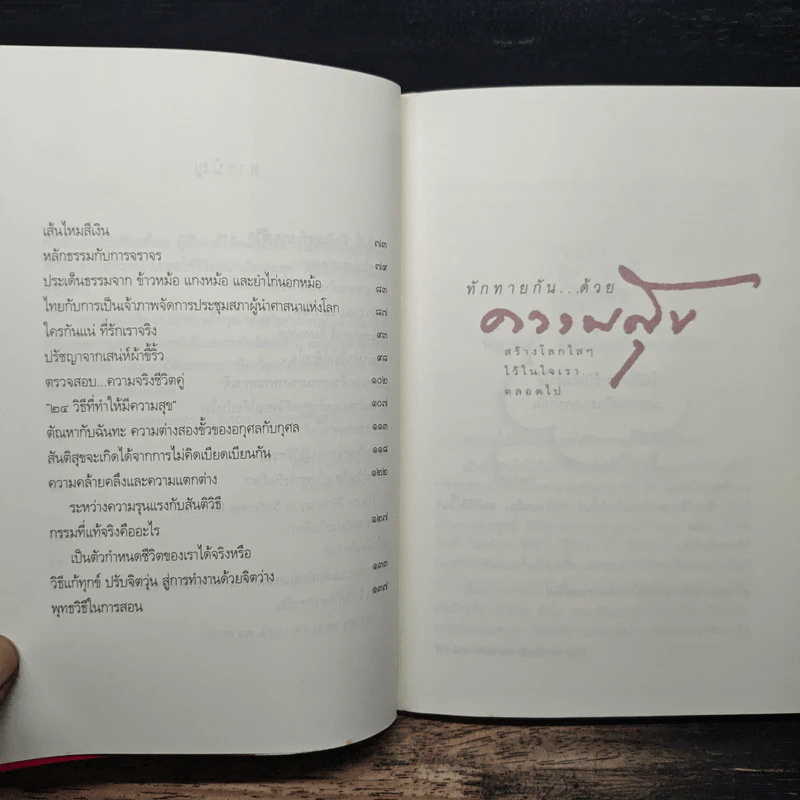 สารบัญ
เส้นไหมสีเงิน ๗๓
หลักธรรมกับการจราจร ๗๙
ประเด็นธรรมจาก ข้าวหม้อ แกงหม้อ และยำไก่นอกหม้อ ๘๓
ไทยกับการเป็นเจ้าภาพจัดการประชุมสภาผู้นำศาสนาแห่งโลก ๘๗
ใครกันแน่ ที่รักเราจริง ๙๓
ปรัชญาจากเสน่ห์ผ้าขี้ริ้ว ๙๘
ตรวจสอบ...ความจริงชีวิตคู่ ๑๐๒
"๒๔ วิธีที่ทำให้มีความสุข" ๑๐๗
ตัณหากับฉันทะ ความต่างสองขั้วของอกุศลกับกุศล ๑๑๓
สันติสุขจะเกิดได้จากการไม่คิดเบียดเบียนกัน ๑๑๘
ความคล้ายคลึงและความแตกต่าง ๑๒๒
ระหว่างความรุนแรงกับสันติวิธี
กรรมที่แท้จริงคืออะไร ๑๒๗
เป็นตัวกำหนดชีวิตของเราได้จริงหรือ
วิธีแก้ทุกข์ ปรับจิตวุ่น สู่การทำงานด้วยจิตว่าง ๑๓๓
พุทธวิธีในการสอน ๑๓๗
ทักทายกัน...ด้วย
ความสุข
สร้างโลกใสๆ
ไว้ในใจเรา...
ตลอดไป